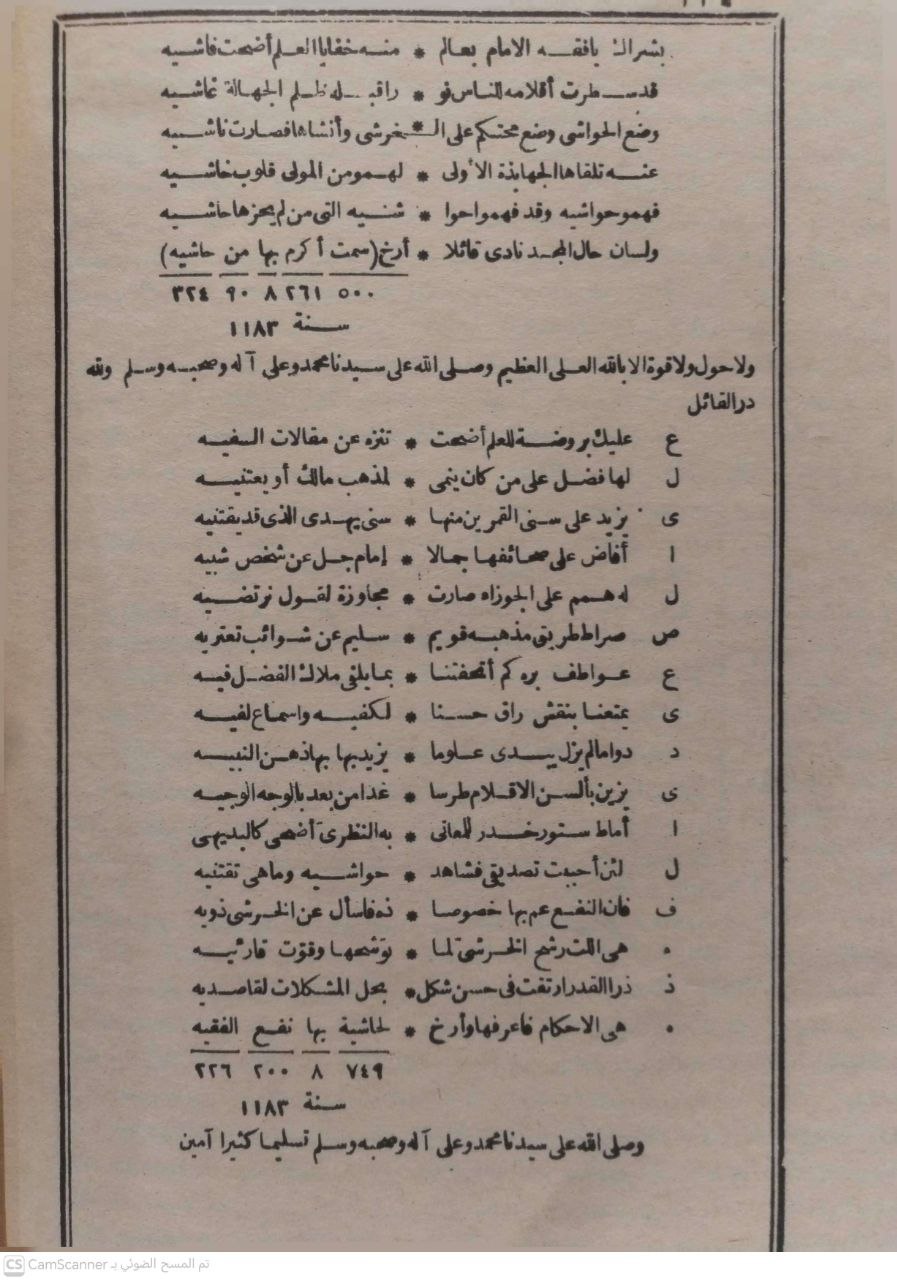 بشراك يافقه الامام بعالم * منه خفايا العلم أضحت فاشيه
قد سطرت أقلامه للناس نو * راقبله ظلم الجهالة تماشيه
وضع الحواشى وضع محتكم على ال * خرشى وأنشاها فصارت ناشيه
عنه تلقاها الجهابذة الأولى * لهمو من المولى قلوب خاشيه
فهمو حواشيه وقد فهموا حوا * شنيه التى من لم يحزها حاشيه
ولسان حال المجد نادى قائلا * أرخ (سمت أكرم بها من حاشيه)
٥٠٠ ٢٦١ ٨ ٩٠ ٣٢٤
سنة ١١٨٣
ولا حول ولا قوة الا بالله العلى العظيم وصلى الله على سيدنا محمد وعلى آله وصحبه وسلم ولله
در القائل
ع عليك بروضة للعلم أضحت * تنزه عن مقالات السفيه
ل لها فضل على من كان ينمى * لمذهب مالك أو يعتنيه
ى يزيد على سنى القمرين منها * سنى يهدى الذى قد يقتنيه
ا أفاض على صحائفها جمالا * إمام جل عن شخص شبيه
ل له همم على الجوزاء صارت * مجاوزة لقول نرتضيه
ص صراط طريق مذهبه قويم * سليم عن شوائب تعتريه
ع عواطف بره كم أتحفتنا * بما يلفى ملاك الفضل فيه
ى يمتعنا بنقش راق حسنا * لكفيه واسماع لفيه
د دواما لم يزل يبدى علوما * يزيد بها بها ذهن النبيه
ى يزين بألسن الاقلام طرسا * غدا من بعد بالوجه الوجيه
ا أماط ستور خدر للمعانى * به النظرى أضحى كالبديهى
ل لئن أحببت تصديقى فشاهد * حواشيه وما هى تقتنيه
ف فان النفع عم بها خصوصا * ذه فاسأل عن الخرشى ذويه
ه هى اللت رشح الخرشى لما * توشحها وقوّت قارئيه
ذ ذرا القدر ارتقت فى حسن شكل * بحل المشكلات لقاصديه
ه هى الاحكام فاعرفها وأرخ * لحاشية بها نفع الفقيه
٧٤٩ ٨ ٢٠٠ ٢٢٦
سنة ١١٨٣
وصلى الله على سيدنا محمد وعلى آله وصحبه وسلم تسليما كثيرا آمين
CS CamScanner تم المسح الضوئي بـ